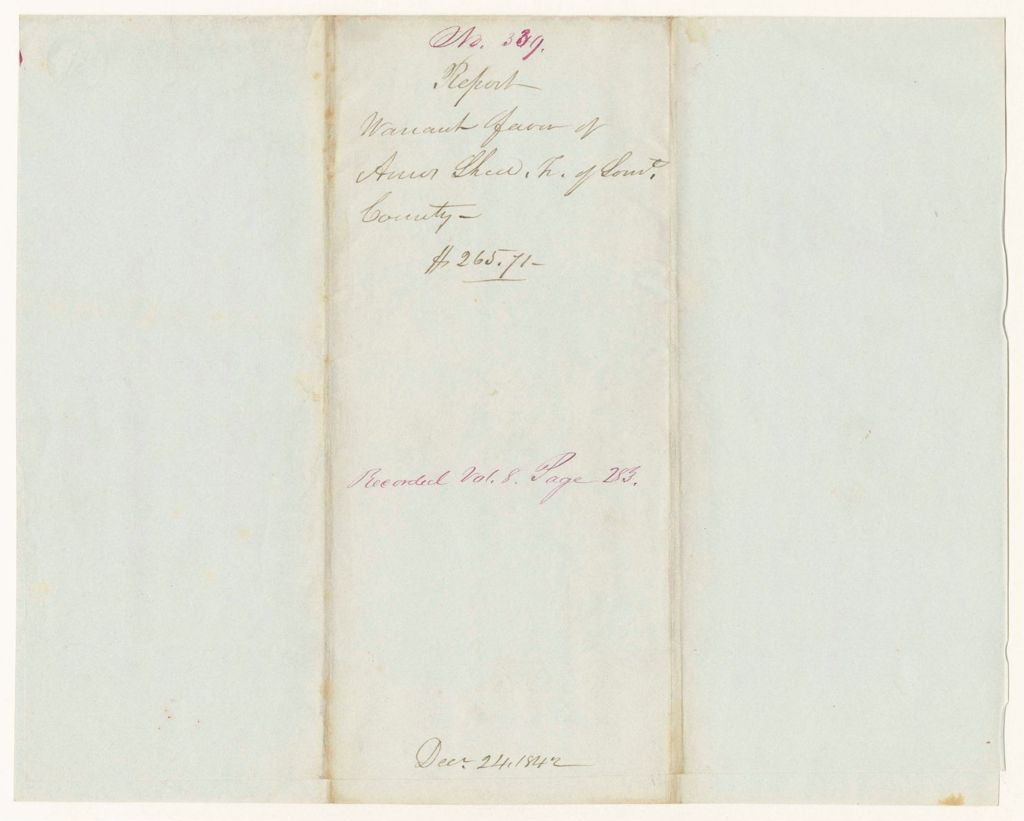 No. 339.
Report
Warrant favor of
Tr. of Som't.
County –
$ 265.71 –
Recorded Vol. 8. Page 283.
Decr. 24, 1842